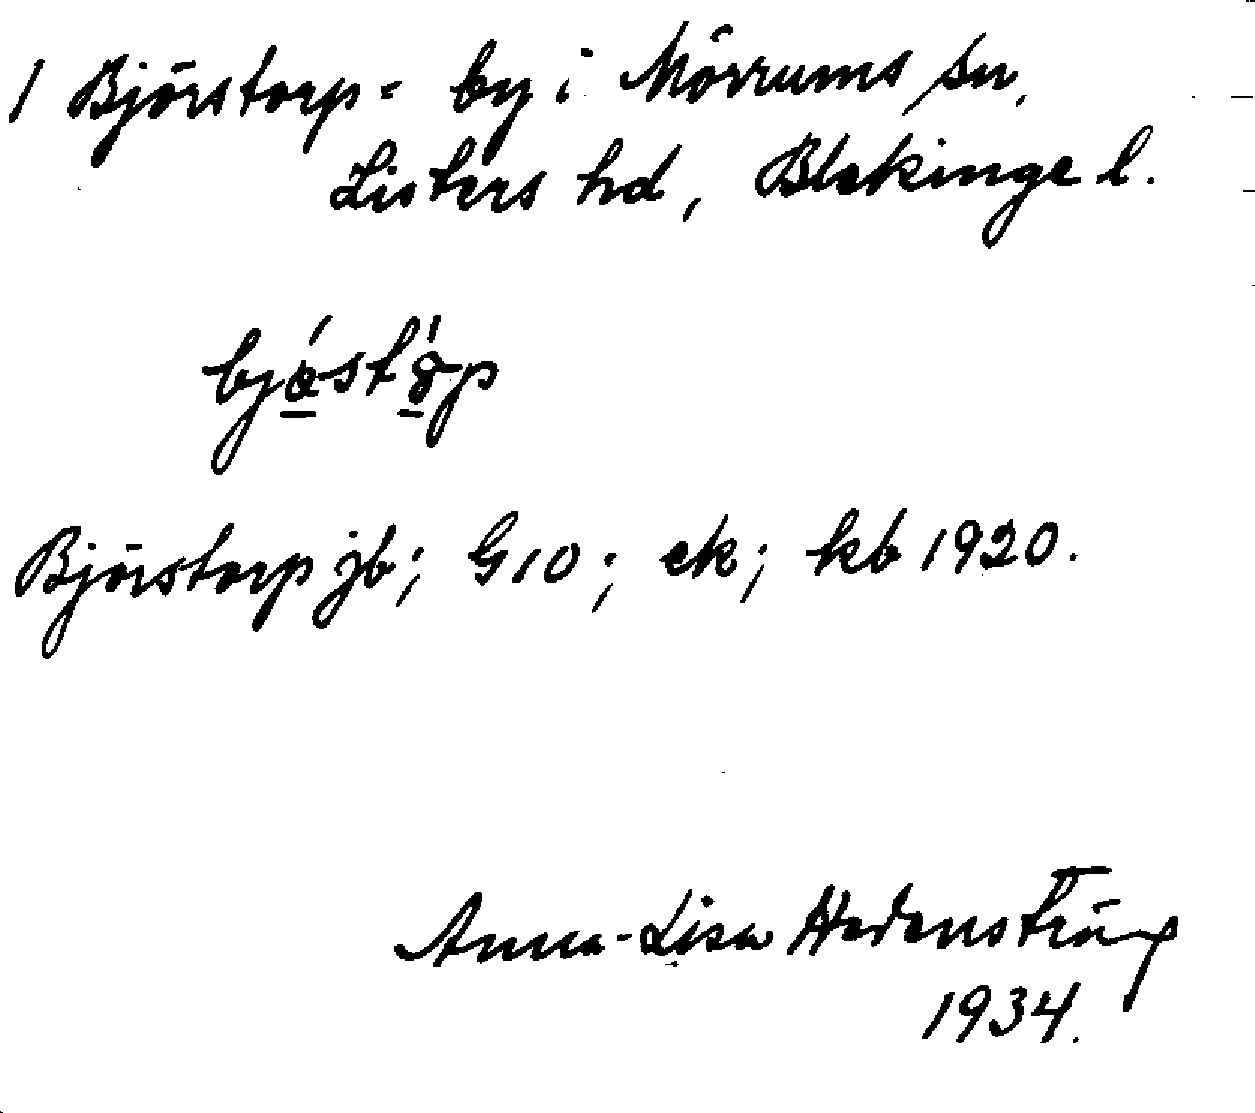 1 Björstorp - by i Mörrums sn,
Listers hd, Blekinge l.
Björstorp jb; G10; ek; kb 1920.
Anna-Lisa
1934.